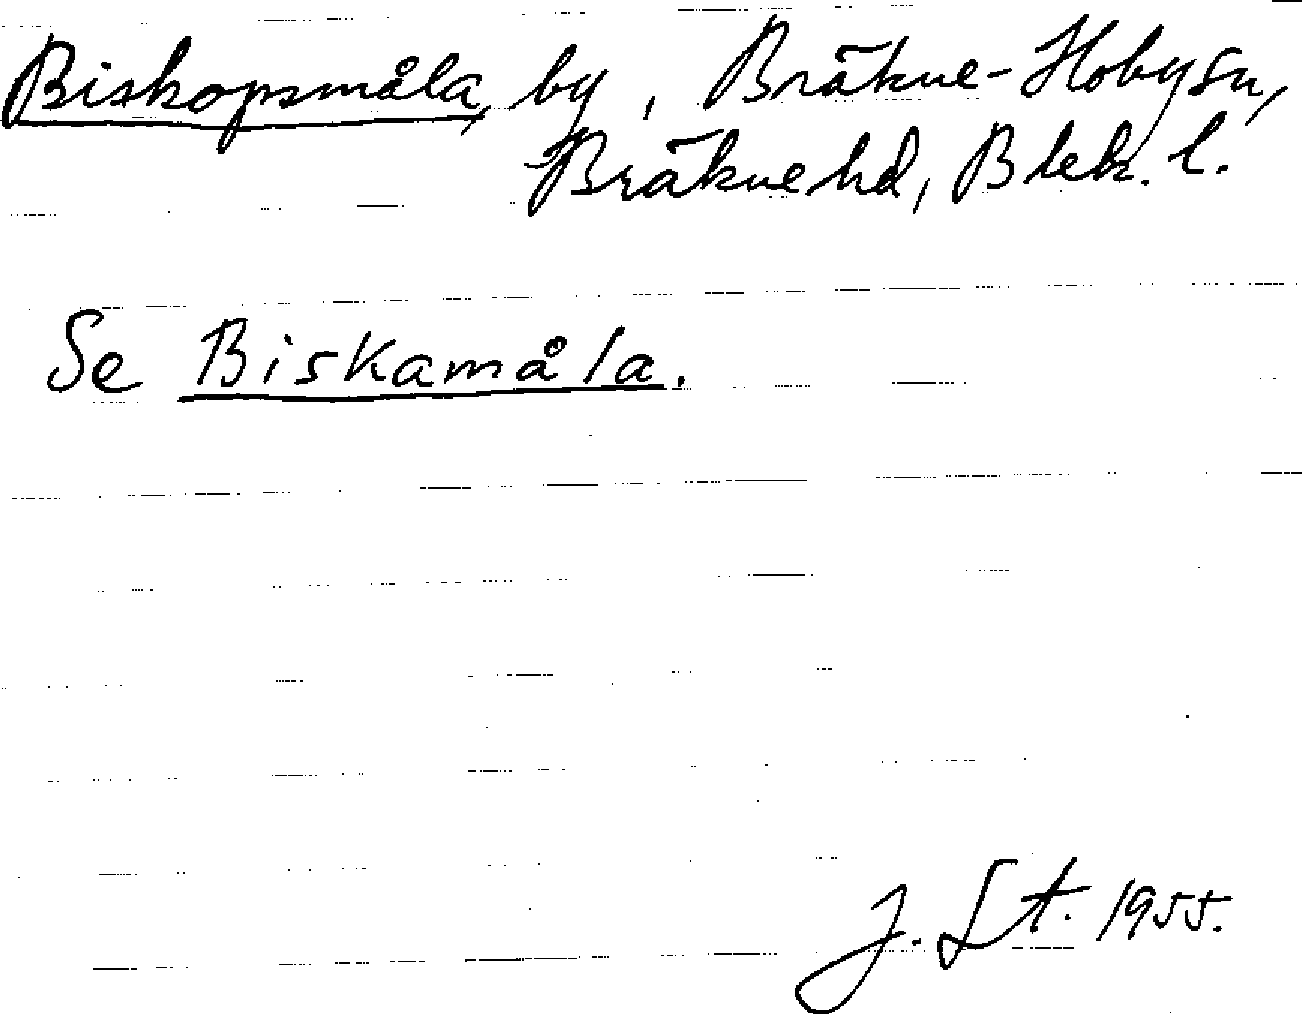 Biskopsmåla, by, Bräkne-Hoby sn,
Bräkne hd, Blek. l.
Se Biskamåla.
J. St. 1955.